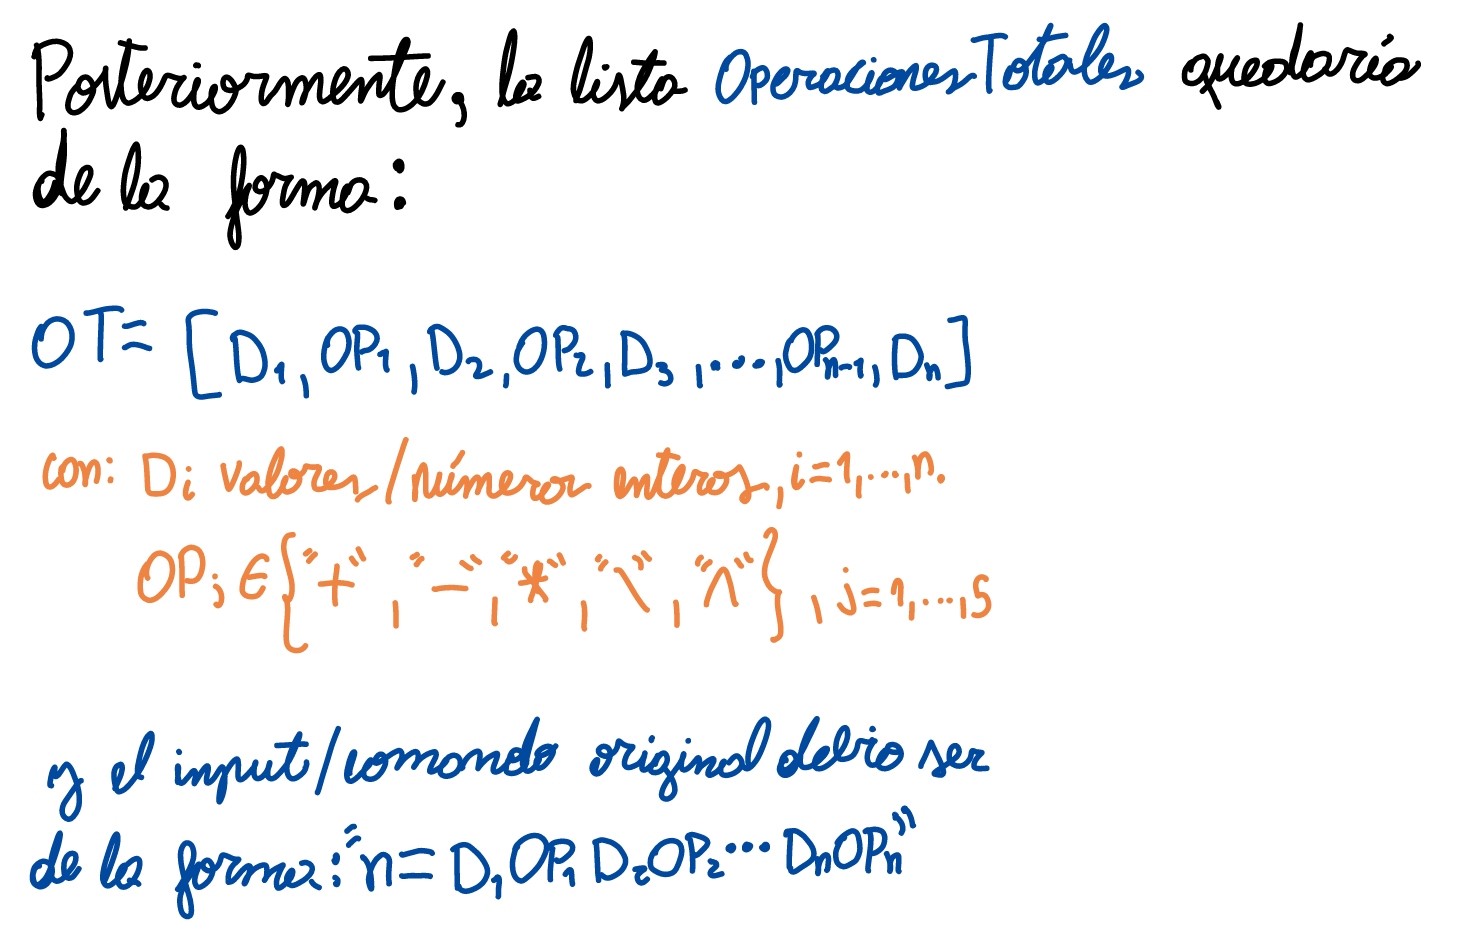 Posteriormente, la lista OperacionesTotales quedaría
de la forma:
OT= [D₁, OP₁, D₂, OP₂, D₃, ..., OPₙ₋₁, Dₙ]
con: Dᵢ valores/números enteros, i=1,...,n.
OPⱼ ∈ {"+", "-", "*", "\", "^"}, j=1,...,5
y el input/comando original debio ser
de la forma: "n= D₁OP₁D₂OP₂...DₙOPₙ"